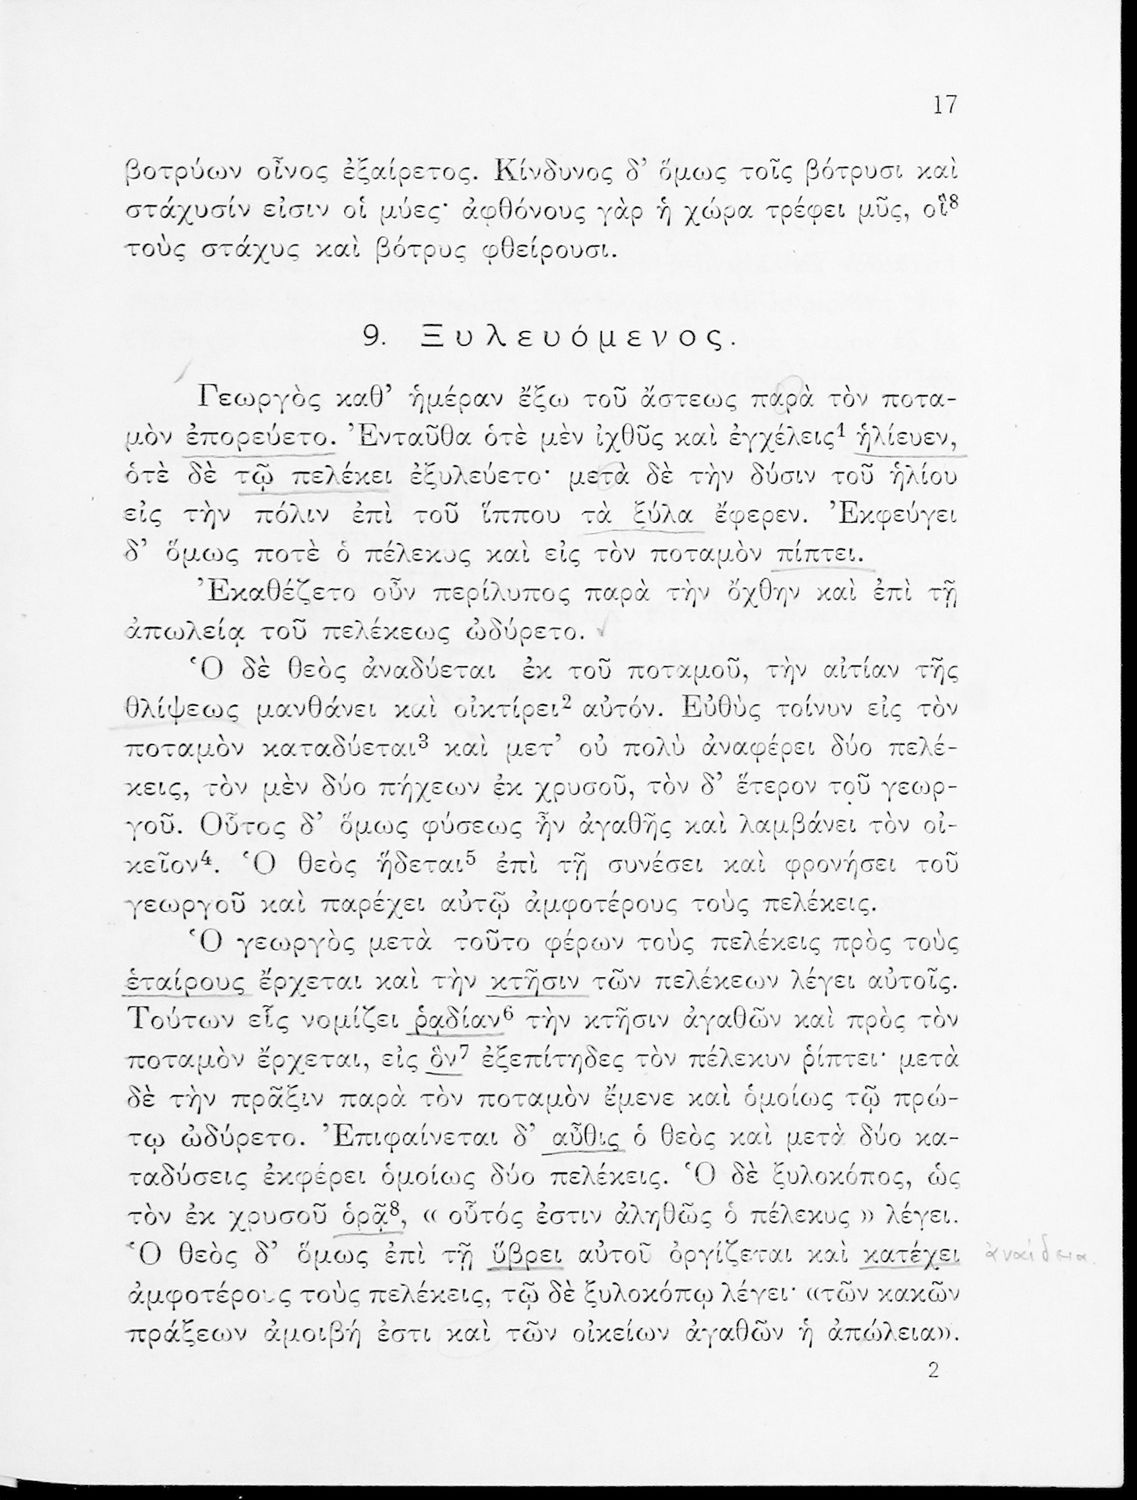 17
βοτρύων οἶνος ἐξαίρετος. Κίνδυνος δ’ ὅμως τοῖς βότρυσι καὶ
στάχυσίν εἰσιν οἱ μύες· ἀφθόνους γὰρ ἡ χώρα τρέφει μῦς, οἳ⁸
τοὺς στάχυς καὶ βότρυς φθείρουσι.
9. Ξυλευόμενος.
Γεωργὸς καθ’ ἡμέραν ἔξω τοῦ ἄστεως παρὰ τὸν ποτα-
μὸν ἐπορεύετο. Ἐνταῦθα ὁτὲ μὲν ἰχθῦς καὶ ἐγχέλεις¹ ἡλίευεν,
ὁτὲ δὲ τῷ πελέκει ἐξυλεύετο· μετὰ δὲ τὴν δύσιν τοῦ ἡλίου
εἰς τὴν πόλιν ἐπὶ τοῦ ἵππου τὰ ξύλα ἔφερεν. Ἐκφεύγει
δ’ ὅμως ποτὲ ὁ πέλεκυς καὶ εἰς τὸν ποταμὸν πίπτει.
Ἐκαθέζετο οὖν περίλυπος παρὰ τὴν ὄχθην καὶ ἐπὶ τῇ
ἀπωλείᾳ τοῦ πελέκεως ὠδύρετο.
Ὁ δὲ θεὸς ἀναδύεται ἐκ τοῦ ποταμοῦ, τὴν αἰτίαν τῆς
θλίψεως μανθάνει καὶ οἰκτίρει² αὐτόν. Εὐθὺς τοίνυν εἰς τὸν
ποταμὸν καταδύεται³ καὶ μετ’ οὐ πολὺ ἀναφέρει δύο πελέ-
κεις, τὸν μὲν δύο πήχεων ἐκ χρυσοῦ, τὸν δ’ ἕτερον τοῦ γεωρ-
γοῦ. Οὗτος δ’ ὅμως φύσεως ἦν ἀγαθῆς καὶ λαμβάνει τὸν οἰ-
κεῖον⁴. Ὁ θεὸς ἥδεται⁵ ἐπὶ τῇ συνέσει καὶ φρονήσει τοῦ
γεωργοῦ καὶ παρέχει αὐτῷ ἀμφοτέρους τοὺς πελέκεις.
Ὁ γεωργὸς μετὰ τοῦτο φέρων τοὺς πελέκεις πρὸς τοὺς
ἑταίρους ἔρχεται καὶ τὴν κτῆσιν τῶν πελέκεων λέγει αὐτοῖς.
Τούτων εἷς νομίζει ῥᾳδίαν⁶ τὴν κτῆσιν ἀγαθῶν καὶ πρὸς τὸν
ποταμὸν ἔρχεται, εἰς ὃν⁷ ἐξεπίτηδες τὸν πέλεκυν ῥίπτει· μετὰ
δὲ τὴν πρᾶξιν παρὰ τὸν ποταμὸν ἔμενε καὶ ὁμοίως τῷ πρώ-
τῳ ὠδύρετο. Ἐπιφαίνεται δ’ αὖθις ὁ θεὸς καὶ μετὰ δύο κα-
ταδύσεις ἐκφέρει ὁμοίως δύο πελέκεις. Ὁ δὲ ξυλοκόπος, ὡς
τὸν ἐκ χρυσοῦ ὁρᾷ⁸, « οὗτός ἐστιν ἀληθῶς ὁ πέλεκυς » λέγει.
Ὁ θεὸς δ’ ὅμως ἐπὶ τῇ ὕβρει αὐτοῦ ὀργίζεται καὶ κατέχει ἀναίδεια.
ἀμφοτέρους τοὺς πελέκεις, τῷ δὲ ξυλοκόπῳ λέγει· «τῶν κακῶν
πράξεων ἀμοιβή ἐστι καὶ τῶν οἰκείων ἀγαθῶν ἡ ἀπώλεια».
2